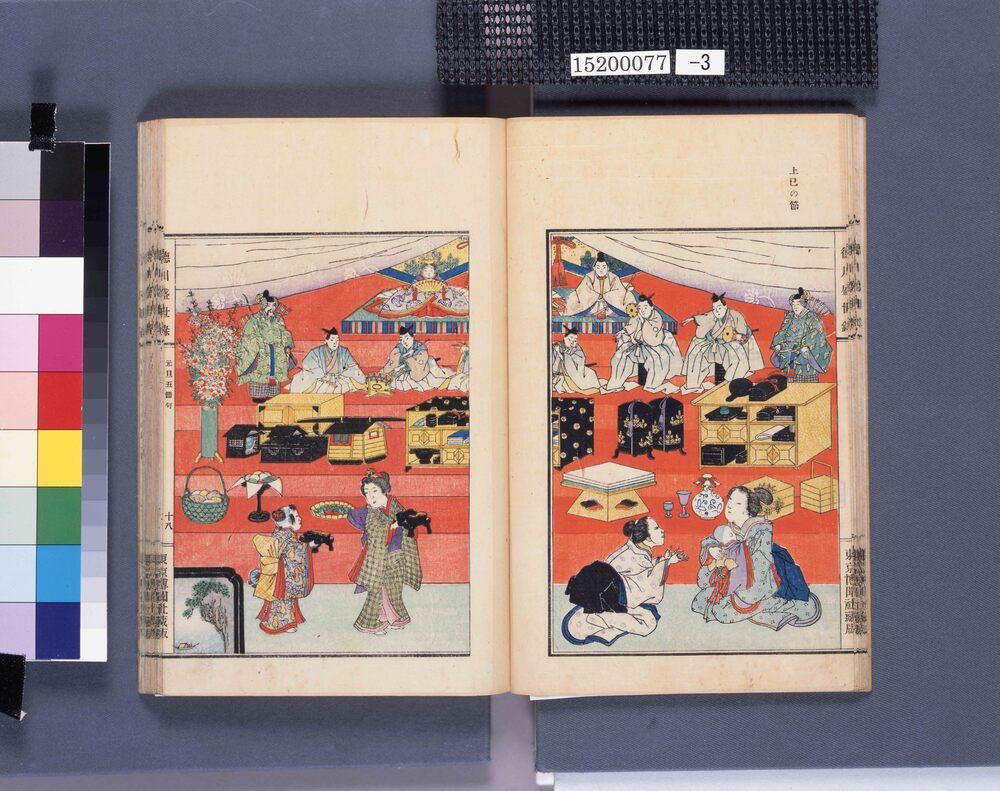 15200077
-3
上巳の節
徳川盛世録
元旦五節句
十八
東京博聞社蔵版
徳川盛世録
東京博聞社蔵版